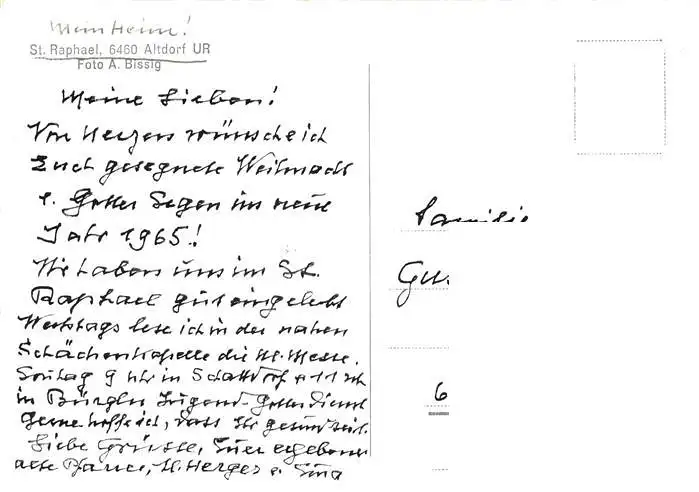 Mein Heim!
St. Raphael, 6460 Altdorf UR
Foto A. Bissig
Meine Lieben!
Von Herzen wünsche ich
Euch gesegnete Weihnacht
e. Gottes Segen im neue
Jahr 1965!
Wir haben uns im St.
Raphael gut eingelebt
Werktags lese ich in der nahen
Schächenkapelle die hl. Messe.
Sontag 9 Uhr in Schattdorf e 11 Uhr
in Bürglen Jugend-Gottesdienst
Gerne hoffe ich, dass Ihr gesund seid.
Liebe Grüsse, Euer ergebener
alte Pfarrer, H. Herger e.
Familie
Gu
6